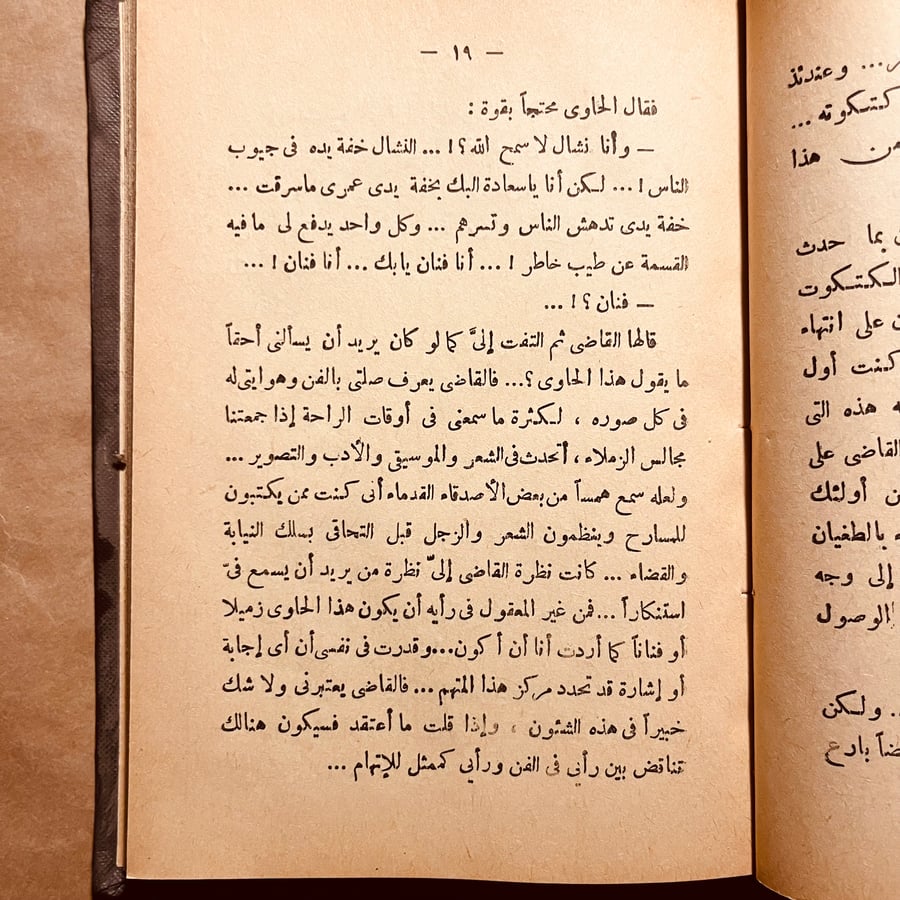 — ١٩ —
فقال الحاوى محتجاً بقوة :
— وأنا نشال لا سمح الله ؟! ... النشال خفة يده فى جيوب
الناس ! ... لكن أنا ياسعادة البك بخفة يدى عمرى ماسرقت ...
خفة يدى تدهش الناس وتسرهم ... وكل واحد يدفع لى مافيه
القسمة عن طيب خاطر ! ... أنا فنان يابك ... أنا فنان ! ...
— فنان ؟! ...
قالها القاضى ثم التفت إلىَّ كما لو كان يريد أن يسألنى أحقاً
ما يقول هذا الحاوى ؟... فالقاضى يعرف صلتى بالفن وهوايتى له
فى كل صوره ، لكثرة ما سمعنى فى أوقات الراحة إذا جمعتنا
مجالس الزملاء ، أتحدث فى الشعر والموسيقى والأدب والتصوير ...
ولعله سمع همساً من بعض الأصدقاء القدماء أنى كنت ممن يكتبون
للمسارح وينظمون الشعر والزجل قبل التحاقى بسلك النيابة
والقضاء ... كانت نظرة القاضى إلىّ نظرة من يريد أن يسمع فىّ
استنكاراً ... فمن غير المعقول فى رأيه أن يكون هذا الحاوى زميلا
أو فناناً كما أردت أنا أن أكون...وقدرت فى نفسى أن أى إجابة
أو إشارة قد تحدد مركز هذا المتهم ... فالقاضى يعتبرنى ولا شك
خبيراً فى هذه الشئون ، وإذا قلت ما أعتقد فسيكون هنالك
تناقض بين رأيى فى الفن ورأيى كممثل للإتهام ...
... وعندئذ
كتكوته ...
من هذا
بما حدث
الكتكوت
على انتهاء
كنت أول
هذه التى
القاضى على
أولئك
بالطغيان
إلى وجه
الوصول
ولكن
بارع